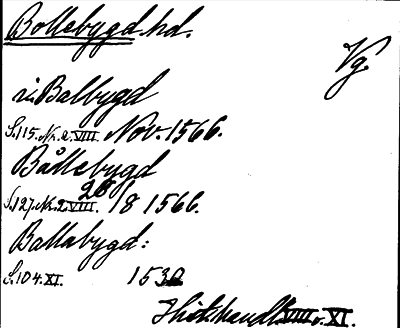 Bollebygd hd.
Vg.
i Balbygd
S.115. Nr. 2. VIII. Nov. 1566.
Bållebygd
S.127. Nr. 2. VIII. 28/8 1566.
Ballabygd:
S.104. XI. 1530
VIII o. XI.